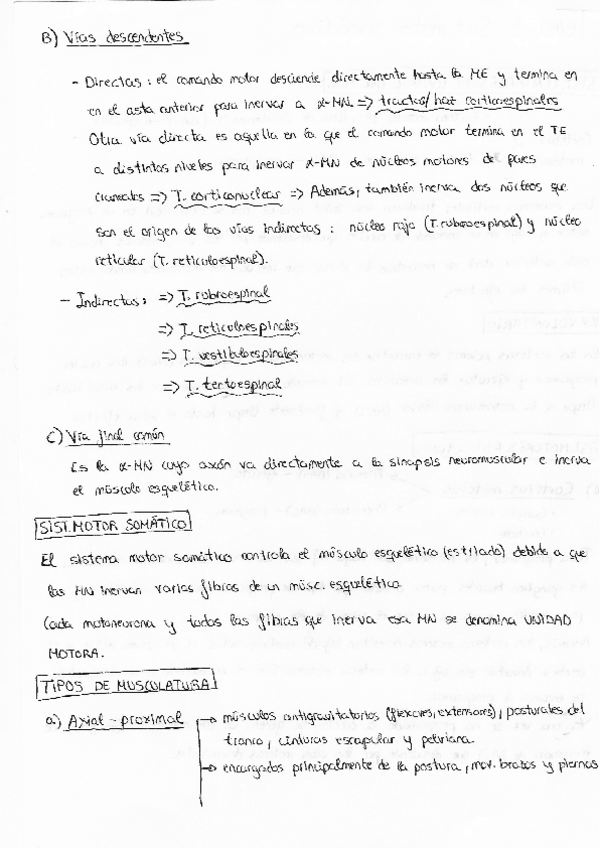 B) Vías descendentes
- Directas: el comando motor desciende directamente hasta la ME y termina en
en el asta anterior para inervar a α-MN => tractos/haz corticoespinales
Otra vía directa es aquella en la que el comando motor termina en el TE
a distintos niveles para inervar α-MN de núcleos motores de pares
craneales => T. corticonuclear => Además, también inerva dos núcleos que
son el origen de las vías indirectas: núcleo rojo (T. rubroespinal) y núcleo
reticular (T. reticuloespinal).
- Indirectas: => T. rubroespinal
=> T. reticuloespinales
=> T. vestibuloespinales
=> T. tectoespinal
C) Vía final común
Es la α-MN cuyo axón va directamente a la sinapsis neuromuscular e inerva
el músculo esquelético.
SIST. MOTOR SOMÁTICO
El sistema motor somático controla el músculo esquelético (estriado) debido a que
las MN inervan varias fibras de un músc. esquelético
Cada motoneurona y todas las fibras que inerva esa MN se denomina UNIDAD
MOTORA.
TIPOS DE MUSCULATURA
a) Axial-proximal → músculos antigravitatorios (flexores, extensores), posturales del
tronco, cinturas escapular y pelviana.
→ encargados principalmente de la postura, mov. brazos y piernas